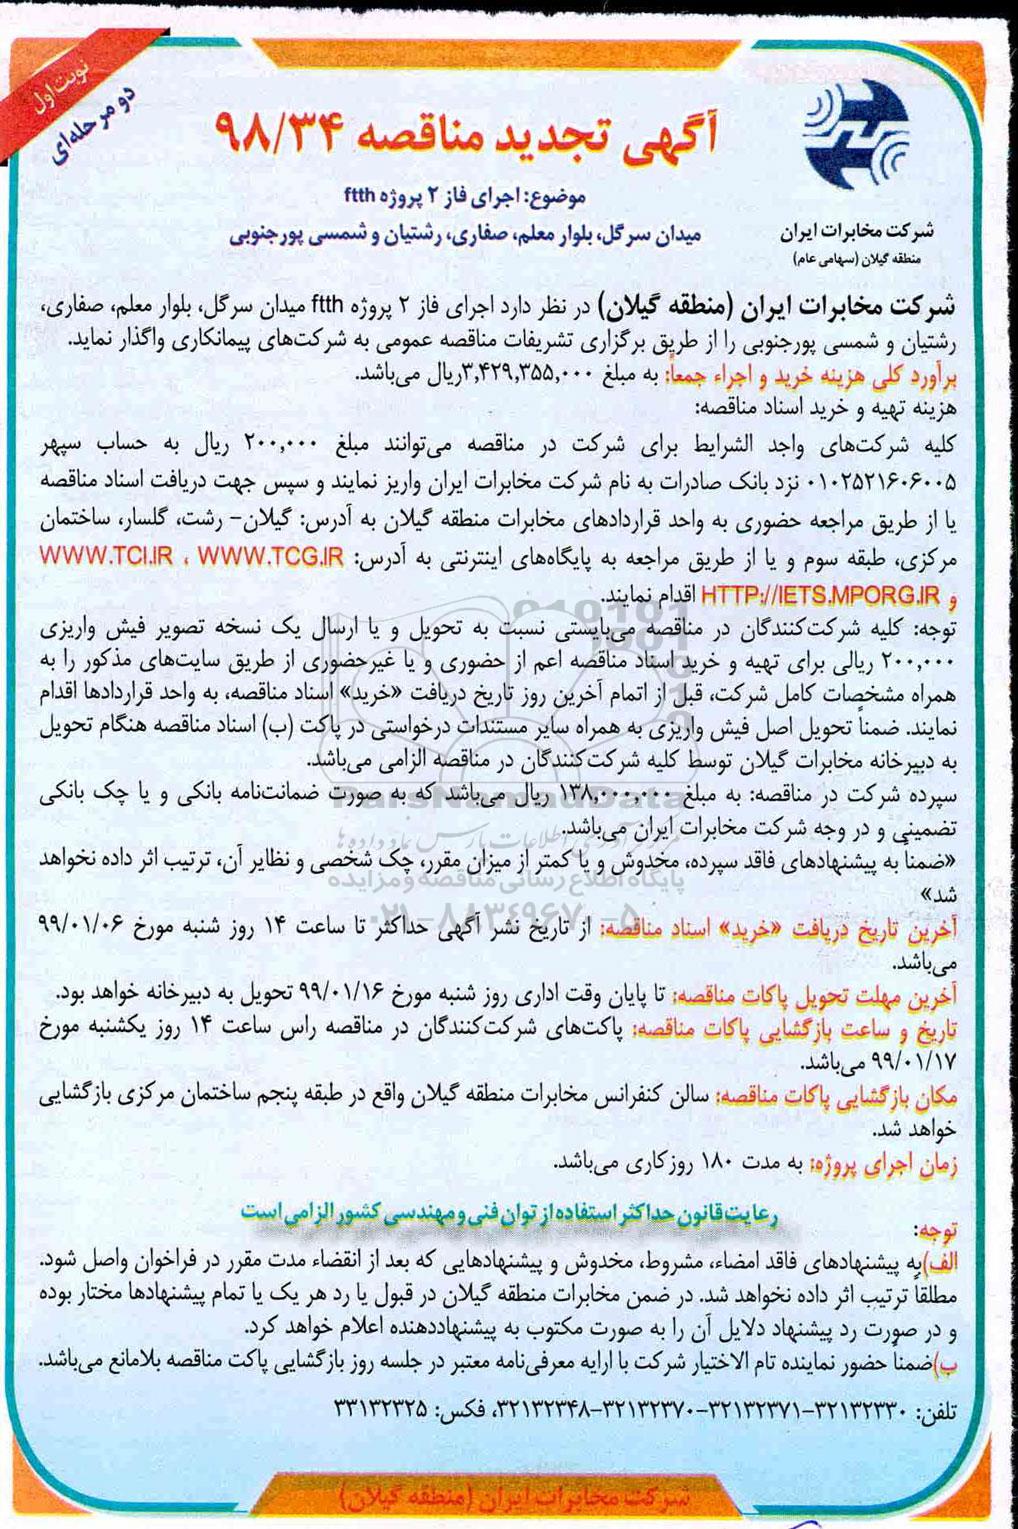 نوبت اول
دو مرحله‌ای
آگهی تجدید مناقصه ۹۸/۳۴
موضوع: اجرای فاز ۲ پروژه ftth
میدان سرگل، بلوار معلم، صفاری، رشتیان و شمسی پورجنوبی
شرکت مخابرات ایران
منطقه گیلان (سهامی عام)
شرکت مخابرات ایران (منطقه گیلان) در نظر دارد اجرای فاز ۲ پروژه ftth میدان سرگل، بلوار معلم، صفاری،
رشتیان و شمسی پورجنوبی را از طریق برگزاری تشریفات مناقصه عمومی به شرکت‌های پیمانکاری واگذار نماید.
برآورد کلی هزینه خرید و اجراء جمعاً: به مبلغ ۳,۴۲۹,۳۵۵,۰۰۰ریال می‌باشد.
هزینه تهیه و خرید اسناد مناقصه:
کلیه شرکت‌های واجد الشرایط برای شرکت در مناقصه می‌توانند مبلغ ۲۰۰,۰۰۰ ریال به حساب سپهر
۰۱۰۲۵۲۱۶۰۶۰۰۵ نزد بانک صادرات به نام شرکت مخابرات ایران واریز نمایند و سپس جهت دریافت اسناد مناقصه
یا از طریق مراجعه حضوری به واحد قراردادهای مخابرات منطقه گیلان به آدرس: گیلان– رشت، گلسار، ساختمان
مرکزی، طبقه سوم و یا از طریق مراجعه به پایگاه‌های اینترنتی به آدرس: WWW.TCI.IR ، WWW.TCG.IR
و HTTP://IETS.MPORG.IR اقدام نمایند.
توجه: کلیه شرکت‌کنندگان در مناقصه می‌بایستی نسبت به تحویل و یا ارسال یک نسخه تصویر فیش واریزی
۲۰۰,۰۰۰ ریالی برای تهیه و خرید اسناد مناقصه اعم از حضوری و یا غیرحضوری از طریق سایت‌های مذکور را به
همراه مشخصات کامل شرکت، قبل از اتمام آخرین روز تاریخ دریافت «خرید» اسناد مناقصه، به واحد قراردادها اقدام
نمایند. ضمناً تحویل اصل فیش واریزی به همراه سایر مستندات درخواستی در پاکت (ب) اسناد مناقصه هنگام تحویل
به دبیرخانه مخابرات گیلان توسط کلیه شرکت‌کنندگان در مناقصه الزامی می‌باشد.
سپرده شرکت در مناقصه: به مبلغ ۱۳۸,۰۰۰,۰۰۰ ریال می‌باشد که به صورت ضمانت‌نامه بانکی و یا چک بانکی
تضمینی و در وجه شرکت مخابرات ایران می‌باشد.
«ضمناً به پیشنهادهای فاقد سپرده، مخدوش و یا کمتر از میزان مقرر، چک شخصی و نظایر آن، ترتیب اثر داده نخواهد
شد»
آخرین تاریخ دریافت «خرید» اسناد مناقصه: از تاریخ نشر آگهی حداکثر تا ساعت ۱۴ روز شنبه مورخ ۹۹/۰۱/۰۶
می‌باشد.
آخرین مهلت تحویل پاکات مناقصه: تا پایان وقت اداری روز شنبه مورخ ۹۹/۰۱/۱۶ تحویل به دبیرخانه خواهد بود.
تاریخ و ساعت بازگشایی پاکات مناقصه: پاکت‌های شرکت‌کنندگان در مناقصه راس ساعت ۱۴ روز یکشنبه مورخ
۹۹/۰۱/۱۷ می‌باشد.
مکان بازگشایی پاکات مناقصه: سالن کنفرانس مخابرات منطقه گیلان واقع در طبقه پنجم ساختمان مرکزی بازگشایی
خواهد شد.
زمان اجرای پروژه: به مدت ۱۸۰ روزکاری می‌باشد.
رعایت قانون حداکثر استفاده از توان فنی و مهندسی کشور الزامی است
توجه:
الف)به پیشنهادهای فاقد امضاء، مشروط، مخدوش و پیشنهادهایی که بعد از انقضاء مدت مقرر در فراخوان واصل شود.
مطلقاً ترتیب اثر داده نخواهد شد. در ضمن مخابرات منطقه گیلان در قبول یا رد هر یک یا تمام پیشنهادها مختار بوده
و در صورت رد پیشنهاد دلایل آن را به صورت مکتوب به پیشنهاددهنده اعلام خواهد کرد.
ب)ضمناً حضور نماینده تام الاختیار شرکت با ارایه معرفی‌نامه معتبر در جلسه روز بازگشایی پاکت مناقصه بلامانع می‌باشد.
تلفن: ۳۲۱۳۲۳۳۰-۳۲۱۳۲۳۷۱-۳۲۱۳۲۳۷۰-۳۲۱۳۲۳۴۸، فکس: ۳۳۱۳۲۳۲۵
شرکت مخابرات ایران (منطقه گیلان)
ParsNamadData
پایگاه اطلاع رسانی مناقصه و مزایده
۰۲۱-۸۸۳۴۹۶۷۰-۵